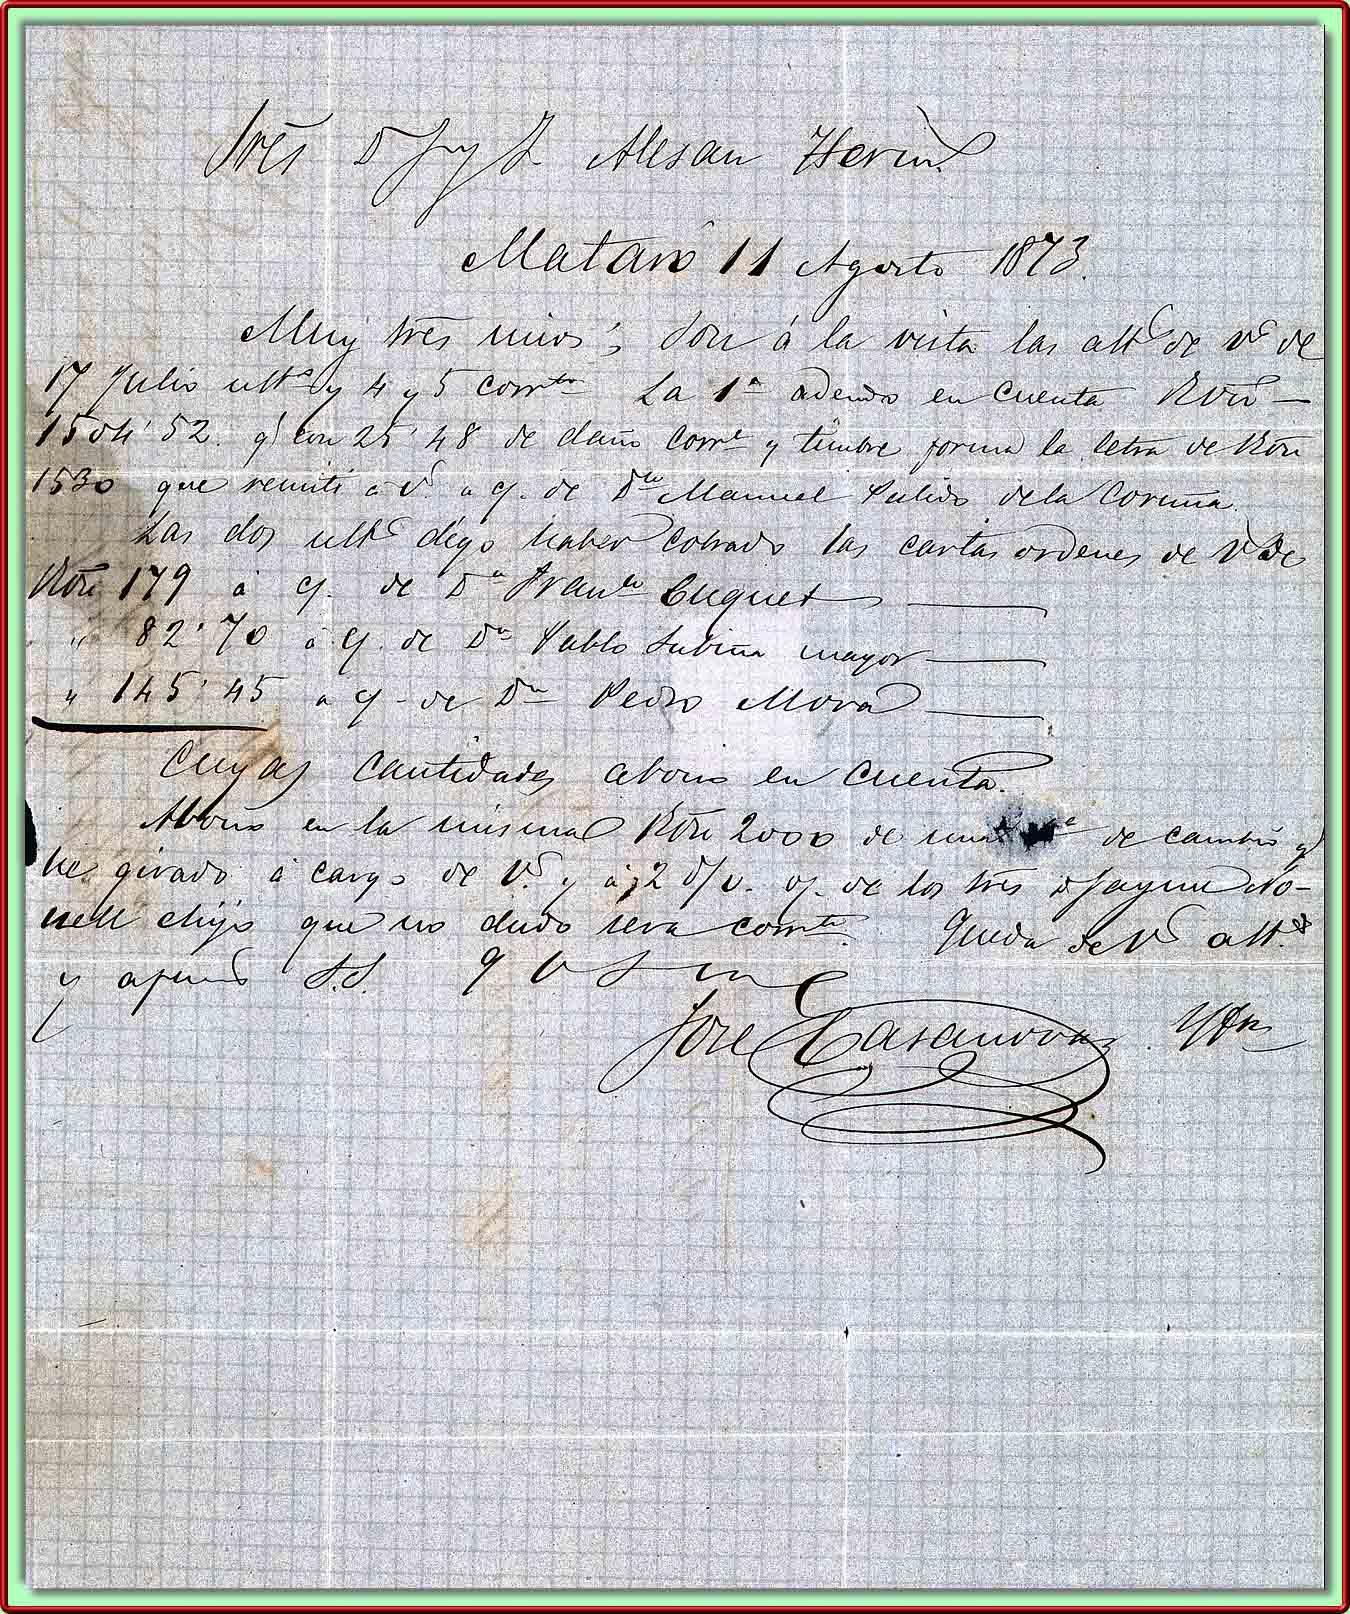 Sres D J y J Alesan Herms
Mataró 11 Agosto 1873.
Muy Sres mios; Son á la vista las atts de Vs de
17 Julio ulto y 4 y 5 corrte La 1ª adendo en cuenta Rvn
1504'52. q con 25'48 de daño corre y timbre forma la letra de Rvn
1530 que remiti á V. a c/. de Dn Manuel Pulido de la Coruña.
Las dos ults digo haber cobrado las cartas ordenes de Vs de
Rvn 179 á c/. de Dn Franco Cuquet
" 82'70 á c/. de Dn Pablo Subiña mayor
" 145'45 a c/ de Dn Pedro Mora
Cuyas cantidades abono en cuenta.
Abono en la misma Rvn 2000 de una de cambio q
he girado á cargo de Vs. y á 2 d/v. o/. de los Sres D Jayme No-
nell é hijo que no dudo sera corrte. Queda de Vs att.
y S.S. q b s m
Jose Casanovas